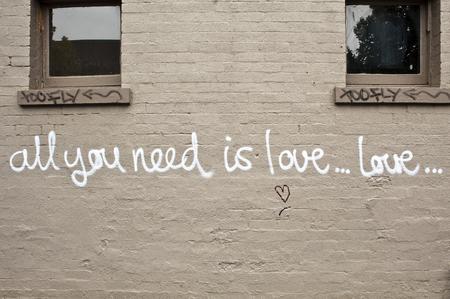 TOOFLY
TOOFLY
all you need is love... love...